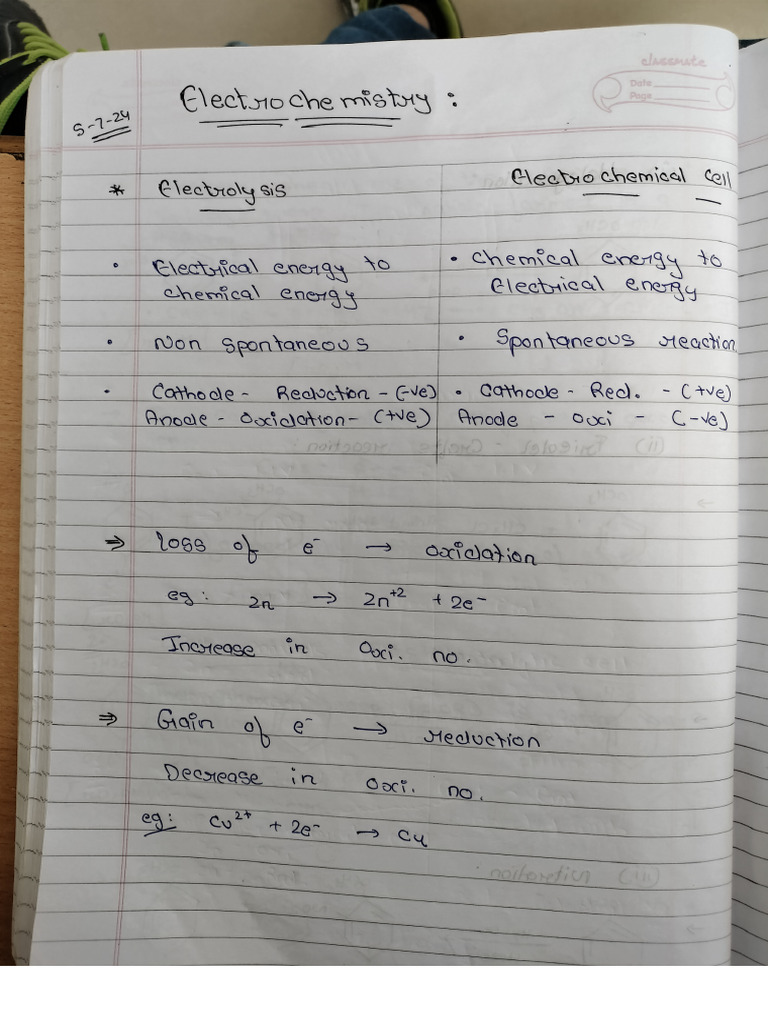 classmate
Date
Page
5-7-24
Electrochemistry :
* Electrolysis
Electrochemical cell
• Electrical energy to
chemical energy
• Chemical energy to
Electrical energy
• Non Spontaneous
• Spontaneous reaction
• Cathode - Reduction - (-ve)
Anode - Oxidation - (+ve)
• Cathode - Red. - (+ve)
Anode - oxi - (-ve)
⇒ Loss of e⁻ → oxidation
eg: Zn → Zn⁺² + 2e⁻
Increase in Oxi. no.
⇒ Gain of e⁻ → reduction
Decrease in oxi. no.
eg: Cu²⁺ + 2e⁻ → Cu